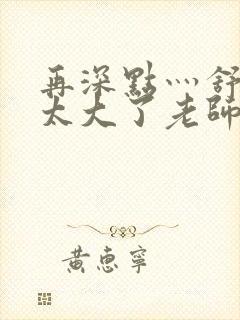 再深點灬舒
太大了老師
黃惠寧